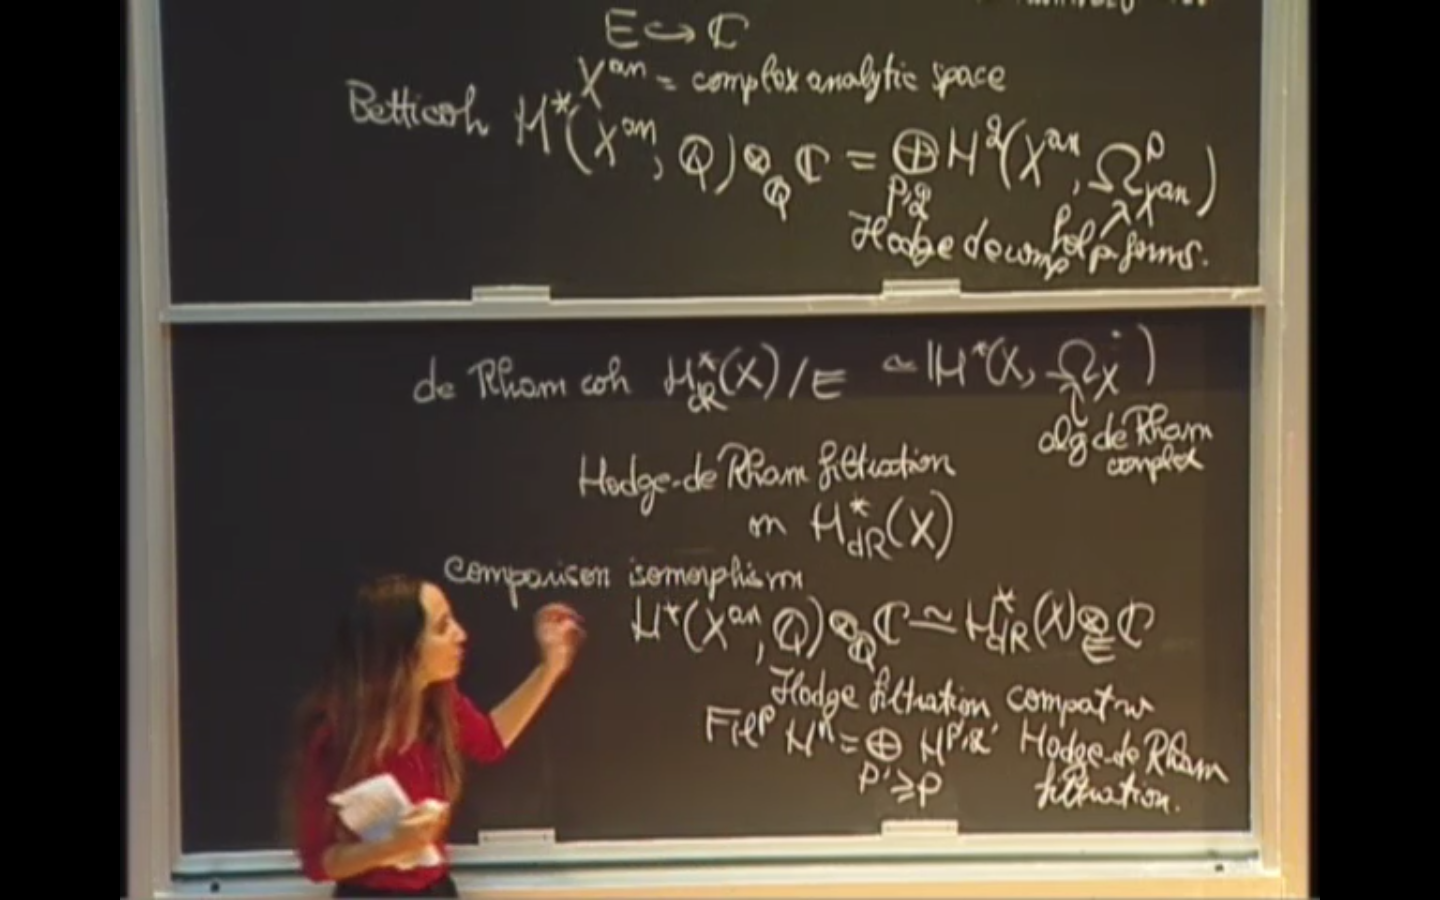 E ↪ ℂ
X^an = complex analytic space
Betti coh H*(X^an, ℚ) ⊗_ℚ ℂ = ⊕_{p,q} H^q(X^an, Ω^p_{X^an})
Hodge decomp hol p-forms.
de Rham coh H*_dR(X) / E ≃ ℍ*(X, Ω_X^•)
alg de Rham
complex
Hodge-de Rham filtration
on H*_dR(X)
comparison isomorphism
H*(X^an, ℚ) ⊗_ℚ ℂ ≃ H*_dR(X) ⊗_E ℂ
Hodge filtration compat w
Fil^p H^n = ⊕_{p'≥p} H^{p',q'} Hodge-de Rham
filtration.